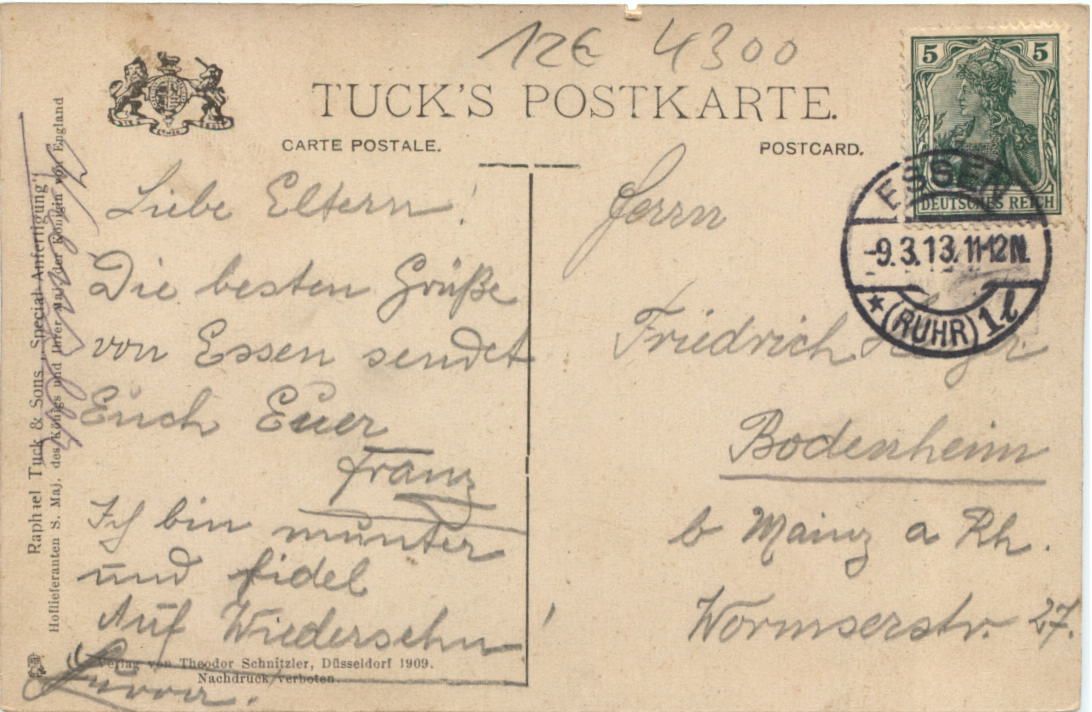 12€ 4300
TUCK'S POSTKARTE.
CARTE POSTALE.
POSTCARD.
5 5
DEUTSCHES REICH
ESSEN
-9.3.13.11-12N.
★ (RUHR) 1 l
Liebe Eltern!
Die besten Grüße
von Essen sendet
Euch Euer
Franz
Ich bin munter
und fidel
Auf Wiedersehn!
Hurra.
Herrn
Friedrich
Bodenheim
b Mainz a Rh.
Wormserstr. 27.
Verlag von Theodor Schnitzler, Düsseldorf 1909.
Nachdruck verboten.
Raphael Tuck & Sons „Special-Anfertigung“
Hoflieferanten S. Maj. des Königs und Ihrer Maj. der Königin von England